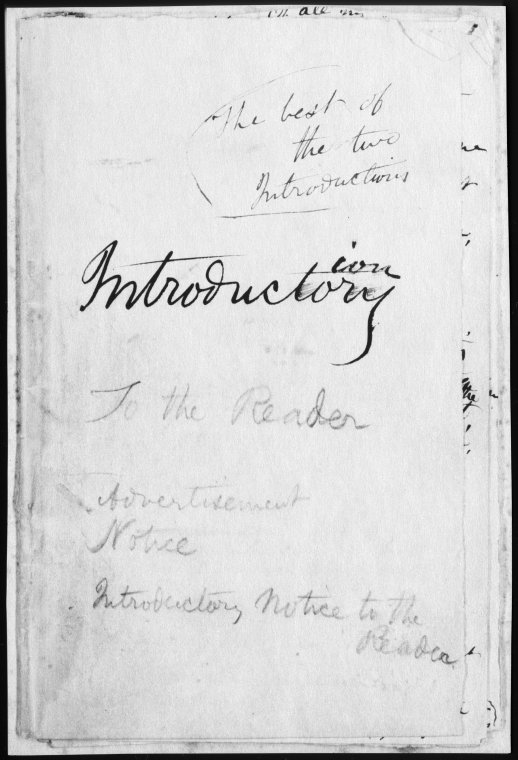 The best of
the two
Introductions
Introductory
ion
To the Reader
Advertisement
Notice
Introductory Notice to the
Reader